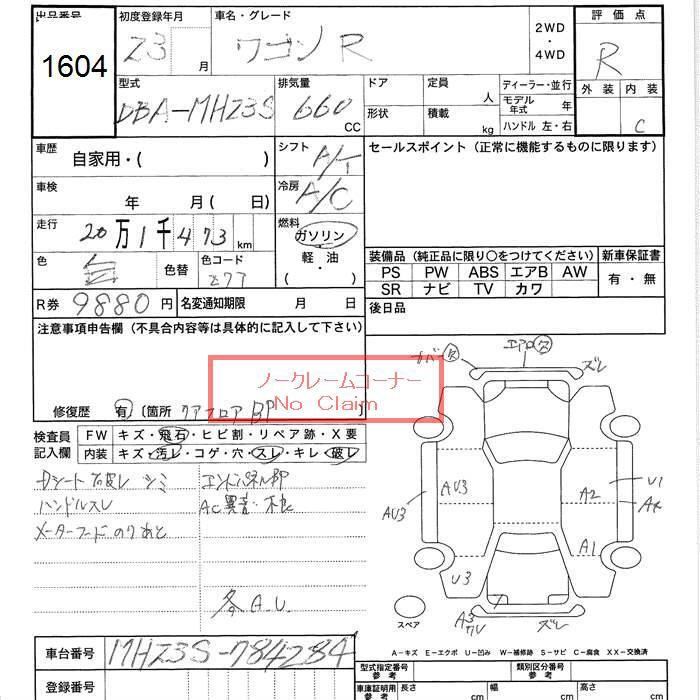 出品番号 初度登録年月 車名・グレード 2WD・4WD 評価点
1604 23 月 ワゴンR R
型式 排気量 ドア 定員 人 ディーラー・並行 外装 内装
DBA-MH23S 660 CC 形状 積載 kg モデル年式 年 C
ハンドル 左・右
車歴 自家用・( ) シフト A/T セールスポイント(正常に機能するものに限ります)
車検 年 月( 日) 冷房 A/C
走行 20万1千473 km 燃料 ガソリン・軽・油 ( )
装備品(純正品に限り〇をつけてください) 新車保証書
色 色替 色コード PS PW ABS エアB AW 有・無
Z7T SR ナビ TV カワ
R券 9880円 名変通知期限 月 日 後日品
注意事項申告欄(不具合内容等は具体的に記入して下さい)
ノークレームコーナー
No Claim
修復歴 有 [箇所 リアフロア BP ]
カバー欠 エアロ欠 ズレ
検査員記入欄 FW キズ・飛石・ヒビ割・リペア跡・X要
内装 キズ・汚レ・コゲ・穴・スレ・キレ・破レ
Dシート破レ シミ エンドパネル部
ハンドルスレ AC異音・不良
メーターフードのりあと
各A.U.
AU3 AU3 A2 U1
A1
U3
スペア A3 ワレ ズレ
A-キズ E-エクボ U-凹み W-補修跡 S-サビ C-腐食 XX-交換済
車台番号 MH23S-784284
登録番号
型式指定番号 参考 類別区分番号 参考
車庫証明用 参考 長さ cm 幅 cm 高さ cm